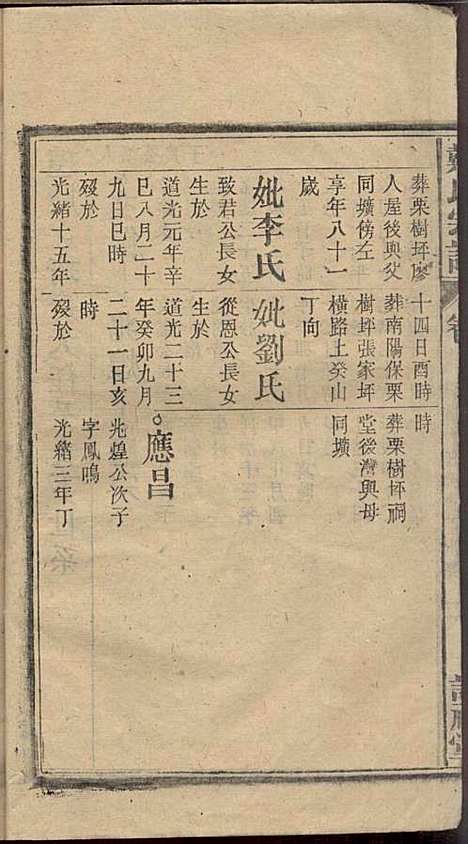 葬栗樹坪廖
人屋後與父
同壙傍左
享年八十一
歲
妣李氏
致君公長女
生於
道光元年辛
巳八月二十
九日巳時
歿於
光緒十五年
十四日酉時
葬南陽保栗
樹坪張家坪
橫路上癸山
丁向
妣劉氏
從恩公長女
生於
道光二十三
年癸卯九月
二十一日亥
時
歿於
時
葬栗樹坪祠
堂後灣與母
同壙
應昌
光煌公次子
字鳳鳴
光緒三年丁